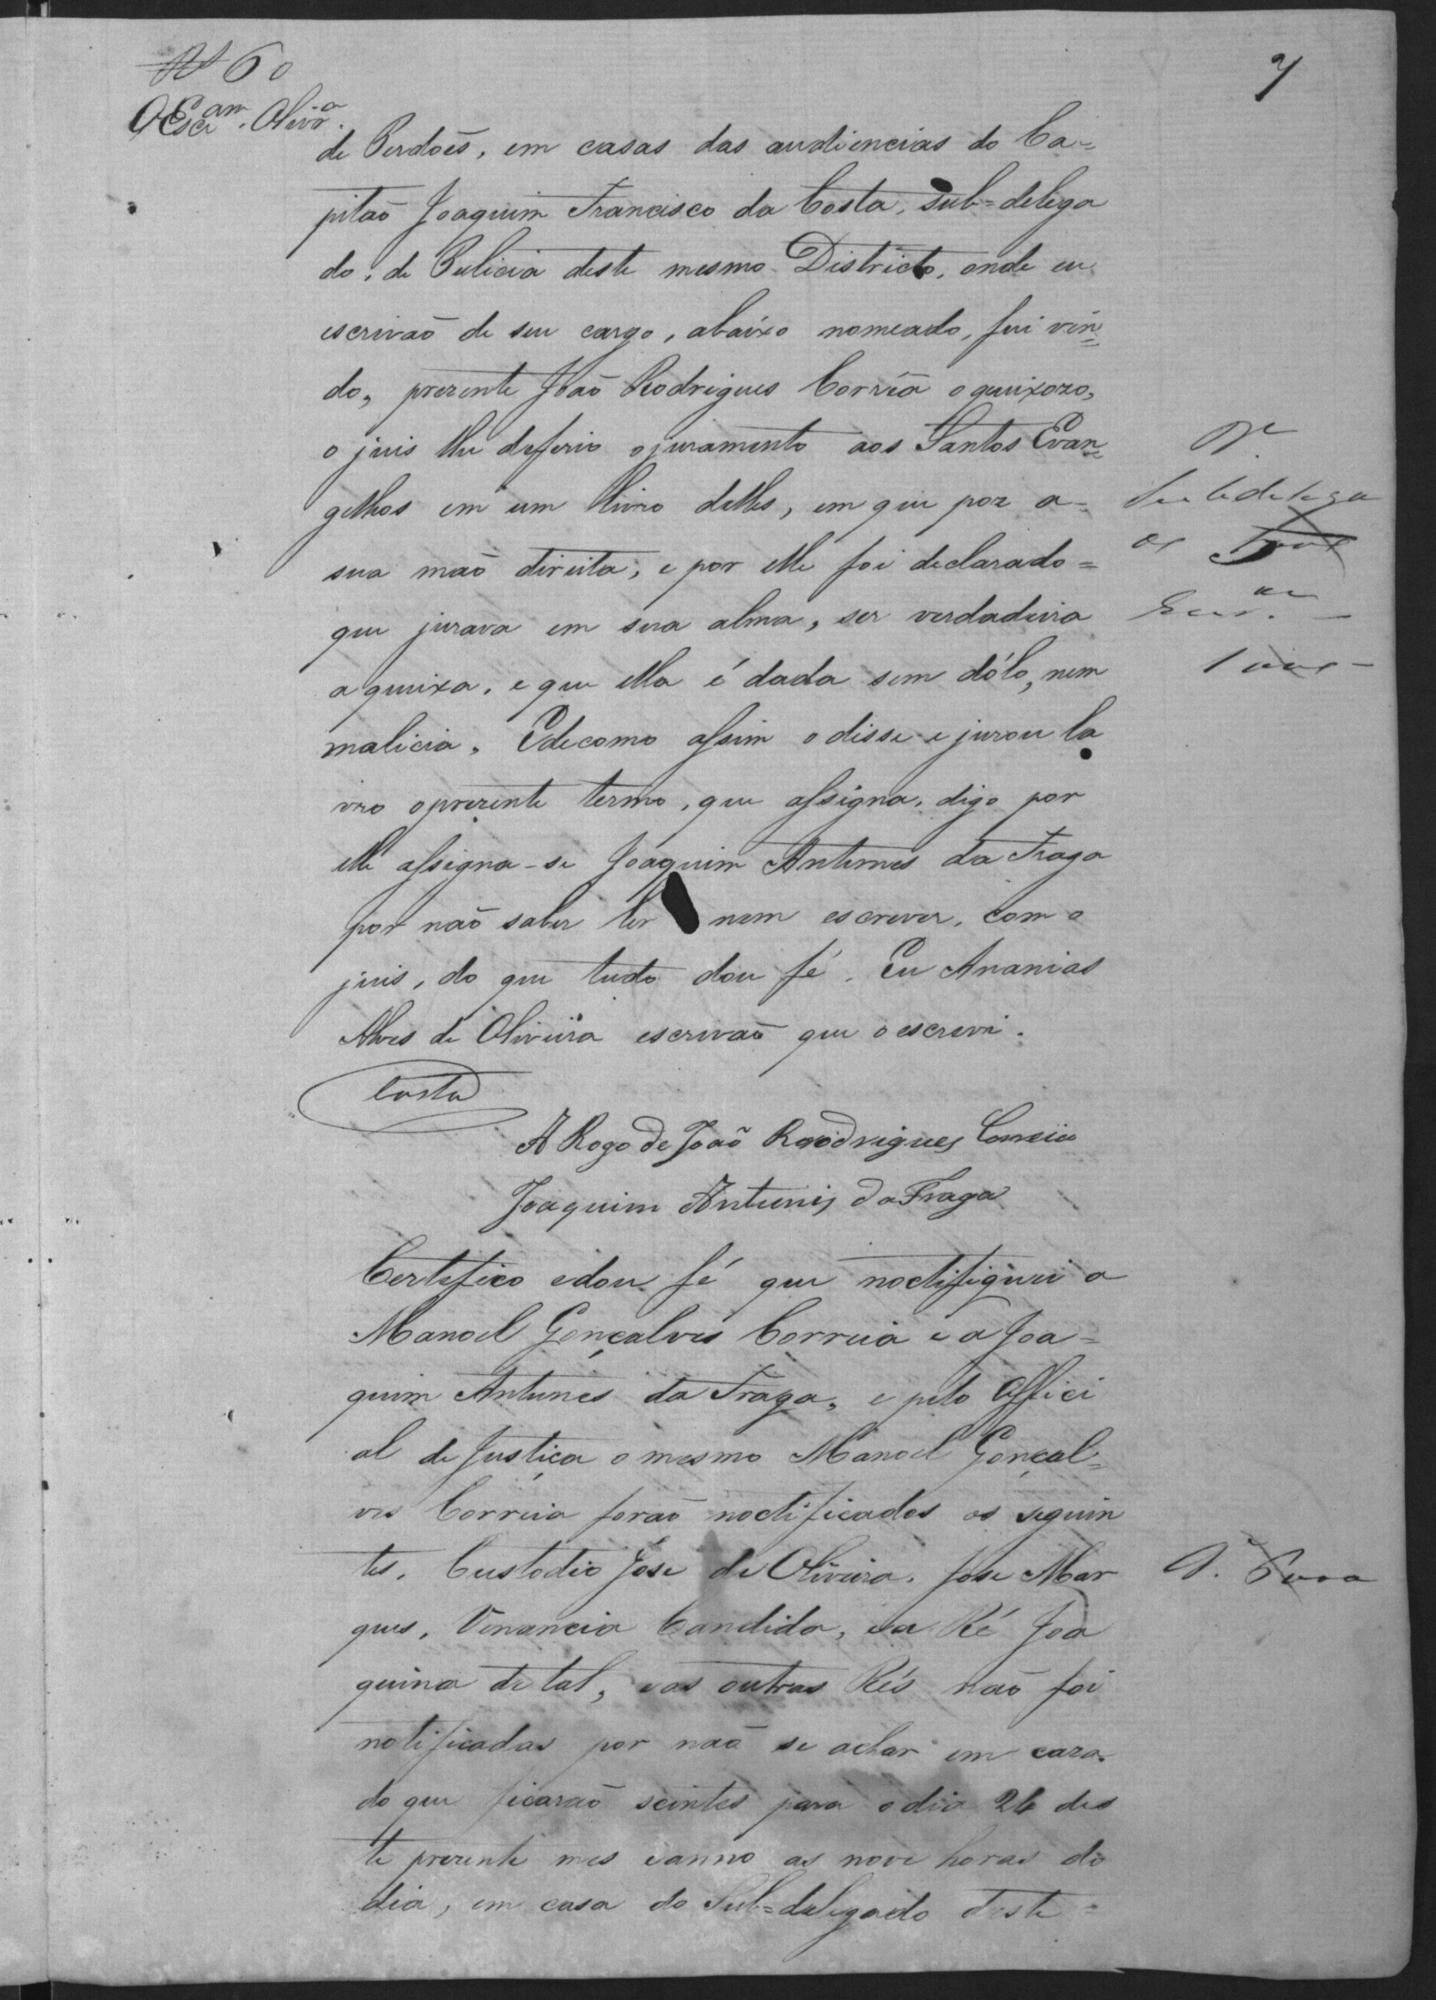 Nº 60
7
O Escram. Olivra.
de Perdoês, em casas das audiencias do Ca=
pitaõ Joaquim Francisco da Costa, Sub=delega
do, de Pulicia deste mesmo Districto, onde eu
escrivaõ de seu cargo, abaixo nomeado, fui vin=
do, prezente Joaõ Rodrigues Corrêa o queixozo,
o juis lhe deferio o juramento aos Santos Evan=
gelhos em um livro delles, em que poz a=
sua maõ direita, e por elle foi declarado=
que jurava em sua alma, ser verdadeira
a queixa, e que ella é dada sem dólo, nem
malicia. E de como assim o disse e jurou la
vro o prezente termo, que assigna, digo por
elle assigna-se Joaquim Antunes da Fraga
por naõ saber ler nem escrever, com o
juis, do que tudo dou fé. Eu Ananias
Alves de Oliveira escrivaõ que o escrevi.
Costa
A Rogo de Joaõ Roodrigues Correia
Joaquim Antunis da Fraga
Certefico e dou fé que noctifiquei a
Manoel Gonçalves Correia e a Joa=
quim Antunes da Fraga, e pelo Offici
al de Justiça o mesmo Manoel Gonçal=
ves Correia foraõ noctificados os seguin
tes. Custodio José de Oliveira, José Mar
ques, Venancia Candida, e a Ré Joa
quina de tal, e as outras Rés naõ foi
notificadas por naõ se achar em caza.
do que ficaraõ scientes para o dia 26 des
te prezente mes e anno as nove horas do
dia, em casa do Sub=delegado deste=